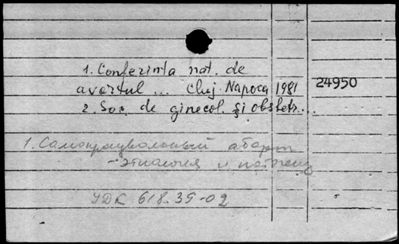 1. Conferinta nat. de
avortul ... Cluj Napoca 1981 24950
2. Soc. de ginecol. și obstetr...
1. Самопроизвольный аборт
- этиология и патогенез
УДК 618.39-02